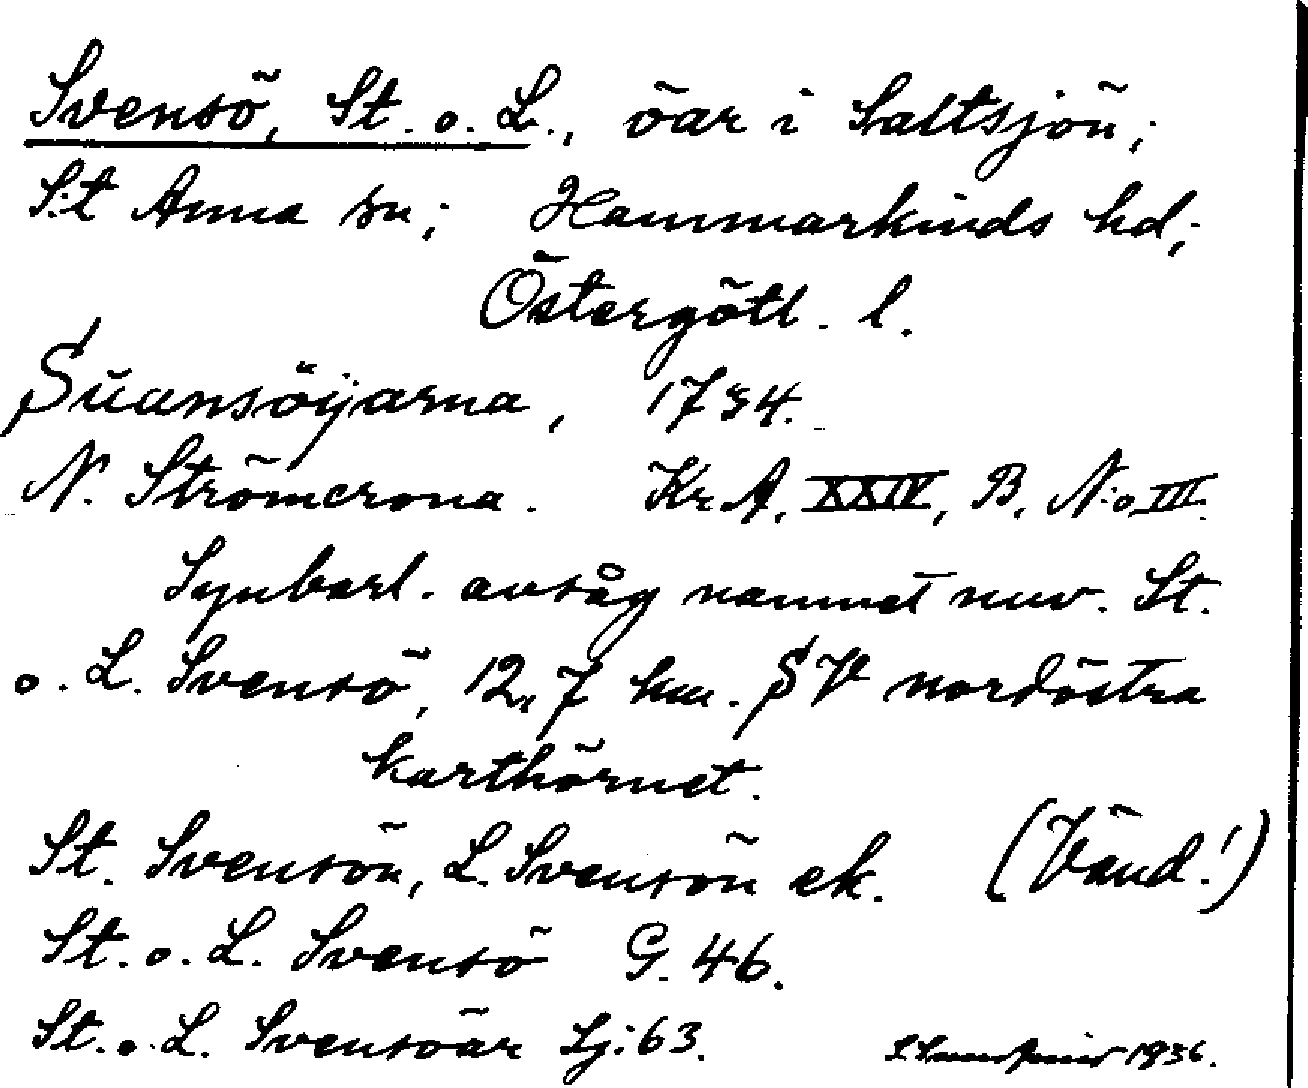 Svensö, St. o. L., öar i Saltsjön;
S:t Anna sn; Hammarkinds hd;
Östergötl. l.
Suansöijarna, 1734.
N. Strömcrona. Kr. A. XXIV, B, N:o III.
Synbarl. avsåg namnet nuv. St.
o. L. Svensö, 12,7 km. SV nordöstra
karthörnet.
St. Svensön, L. Svensön ek. (Vänd!)
St. o. L. Svensö G. 46.
St. o. L. Svensöar Sj: 63.
1936.